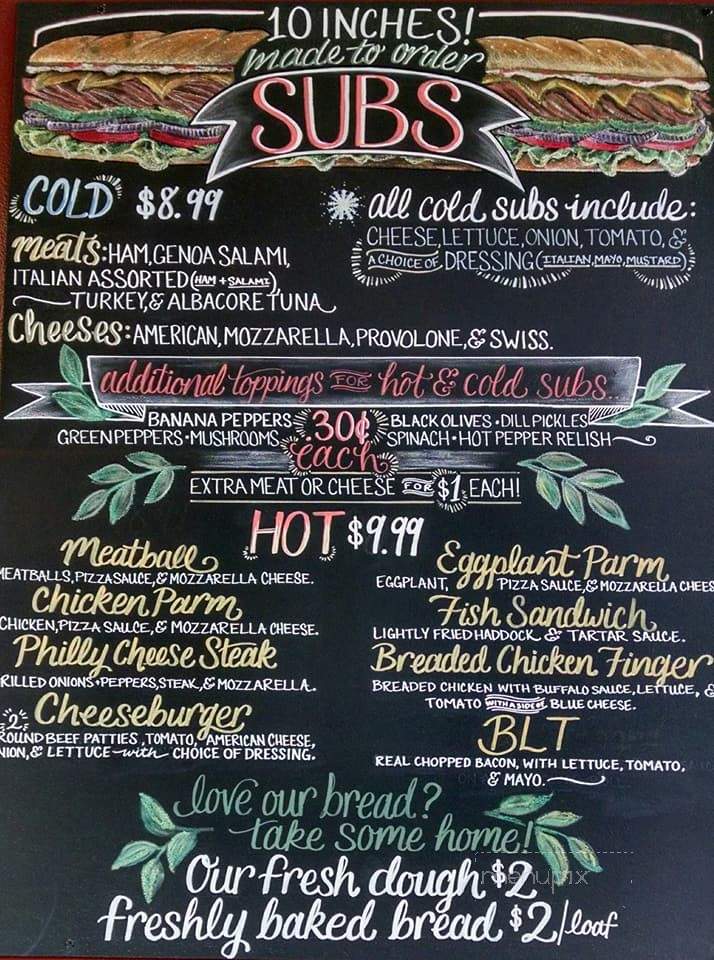 10 INCHES!
made to order
SUBS
COLD $8.99
meats: HAM, GENOA SALAMI,
ITALIAN ASSORTED (HAM + SALAMI),
TURKEY, & ALBACORE TUNA
Cheeses: AMERICAN, MOZZARELLA, PROVOLONE, & SWISS.
all cold subs include:
CHEESE, LETTUCE, ONION, TOMATO, &
A CHOICE OF DRESSING (ITALIAN, MAYO, MUSTARD)
additional toppings FOR hot & cold subs..
BANANA PEPPERS
GREEN PEPPERS • MUSHROOMS
.30¢
each
BLACK OLIVES • DILL PICKLES
SPINACH • HOT PEPPER RELISH
EXTRA MEAT OR CHEESE FOR $1 EACH!
HOT $9.99
Meatball
MEATBALLS, PIZZA SAUCE, & MOZZARELLA CHEESE.
Chicken Parm
CHICKEN, PIZZA SAUCE, & MOZZARELLA CHEESE.
Philly Cheese Steak
RILLED ONIONS + PEPPERS, STEAK, & MOZZARELLA.
Cheeseburger
2
ROUND BEEF PATTIES, TOMATO, AMERICAN CHEESE,
NION, & LETTUCE with CHOICE OF DRESSING.
Eggplant Parm
EGGPLANT, PIZZA SAUCE, & MOZZARELLA CHEES
Fish Sandwich
LIGHTLY FRIED HADDOCK & TARTAR SAUCE.
Breaded Chicken Finger
BREADED CHICKEN WITH BUFFALO SAUCE, LETTUCE, &
TOMATO WITH A SIDE OF BLUE CHEESE.
BLT
REAL CHOPPED BACON, WITH LETTUCE, TOMATO,
& MAYO.
love our bread?
take some home!
Our fresh dough $2
freshly baked bread $2/loaf
menupix